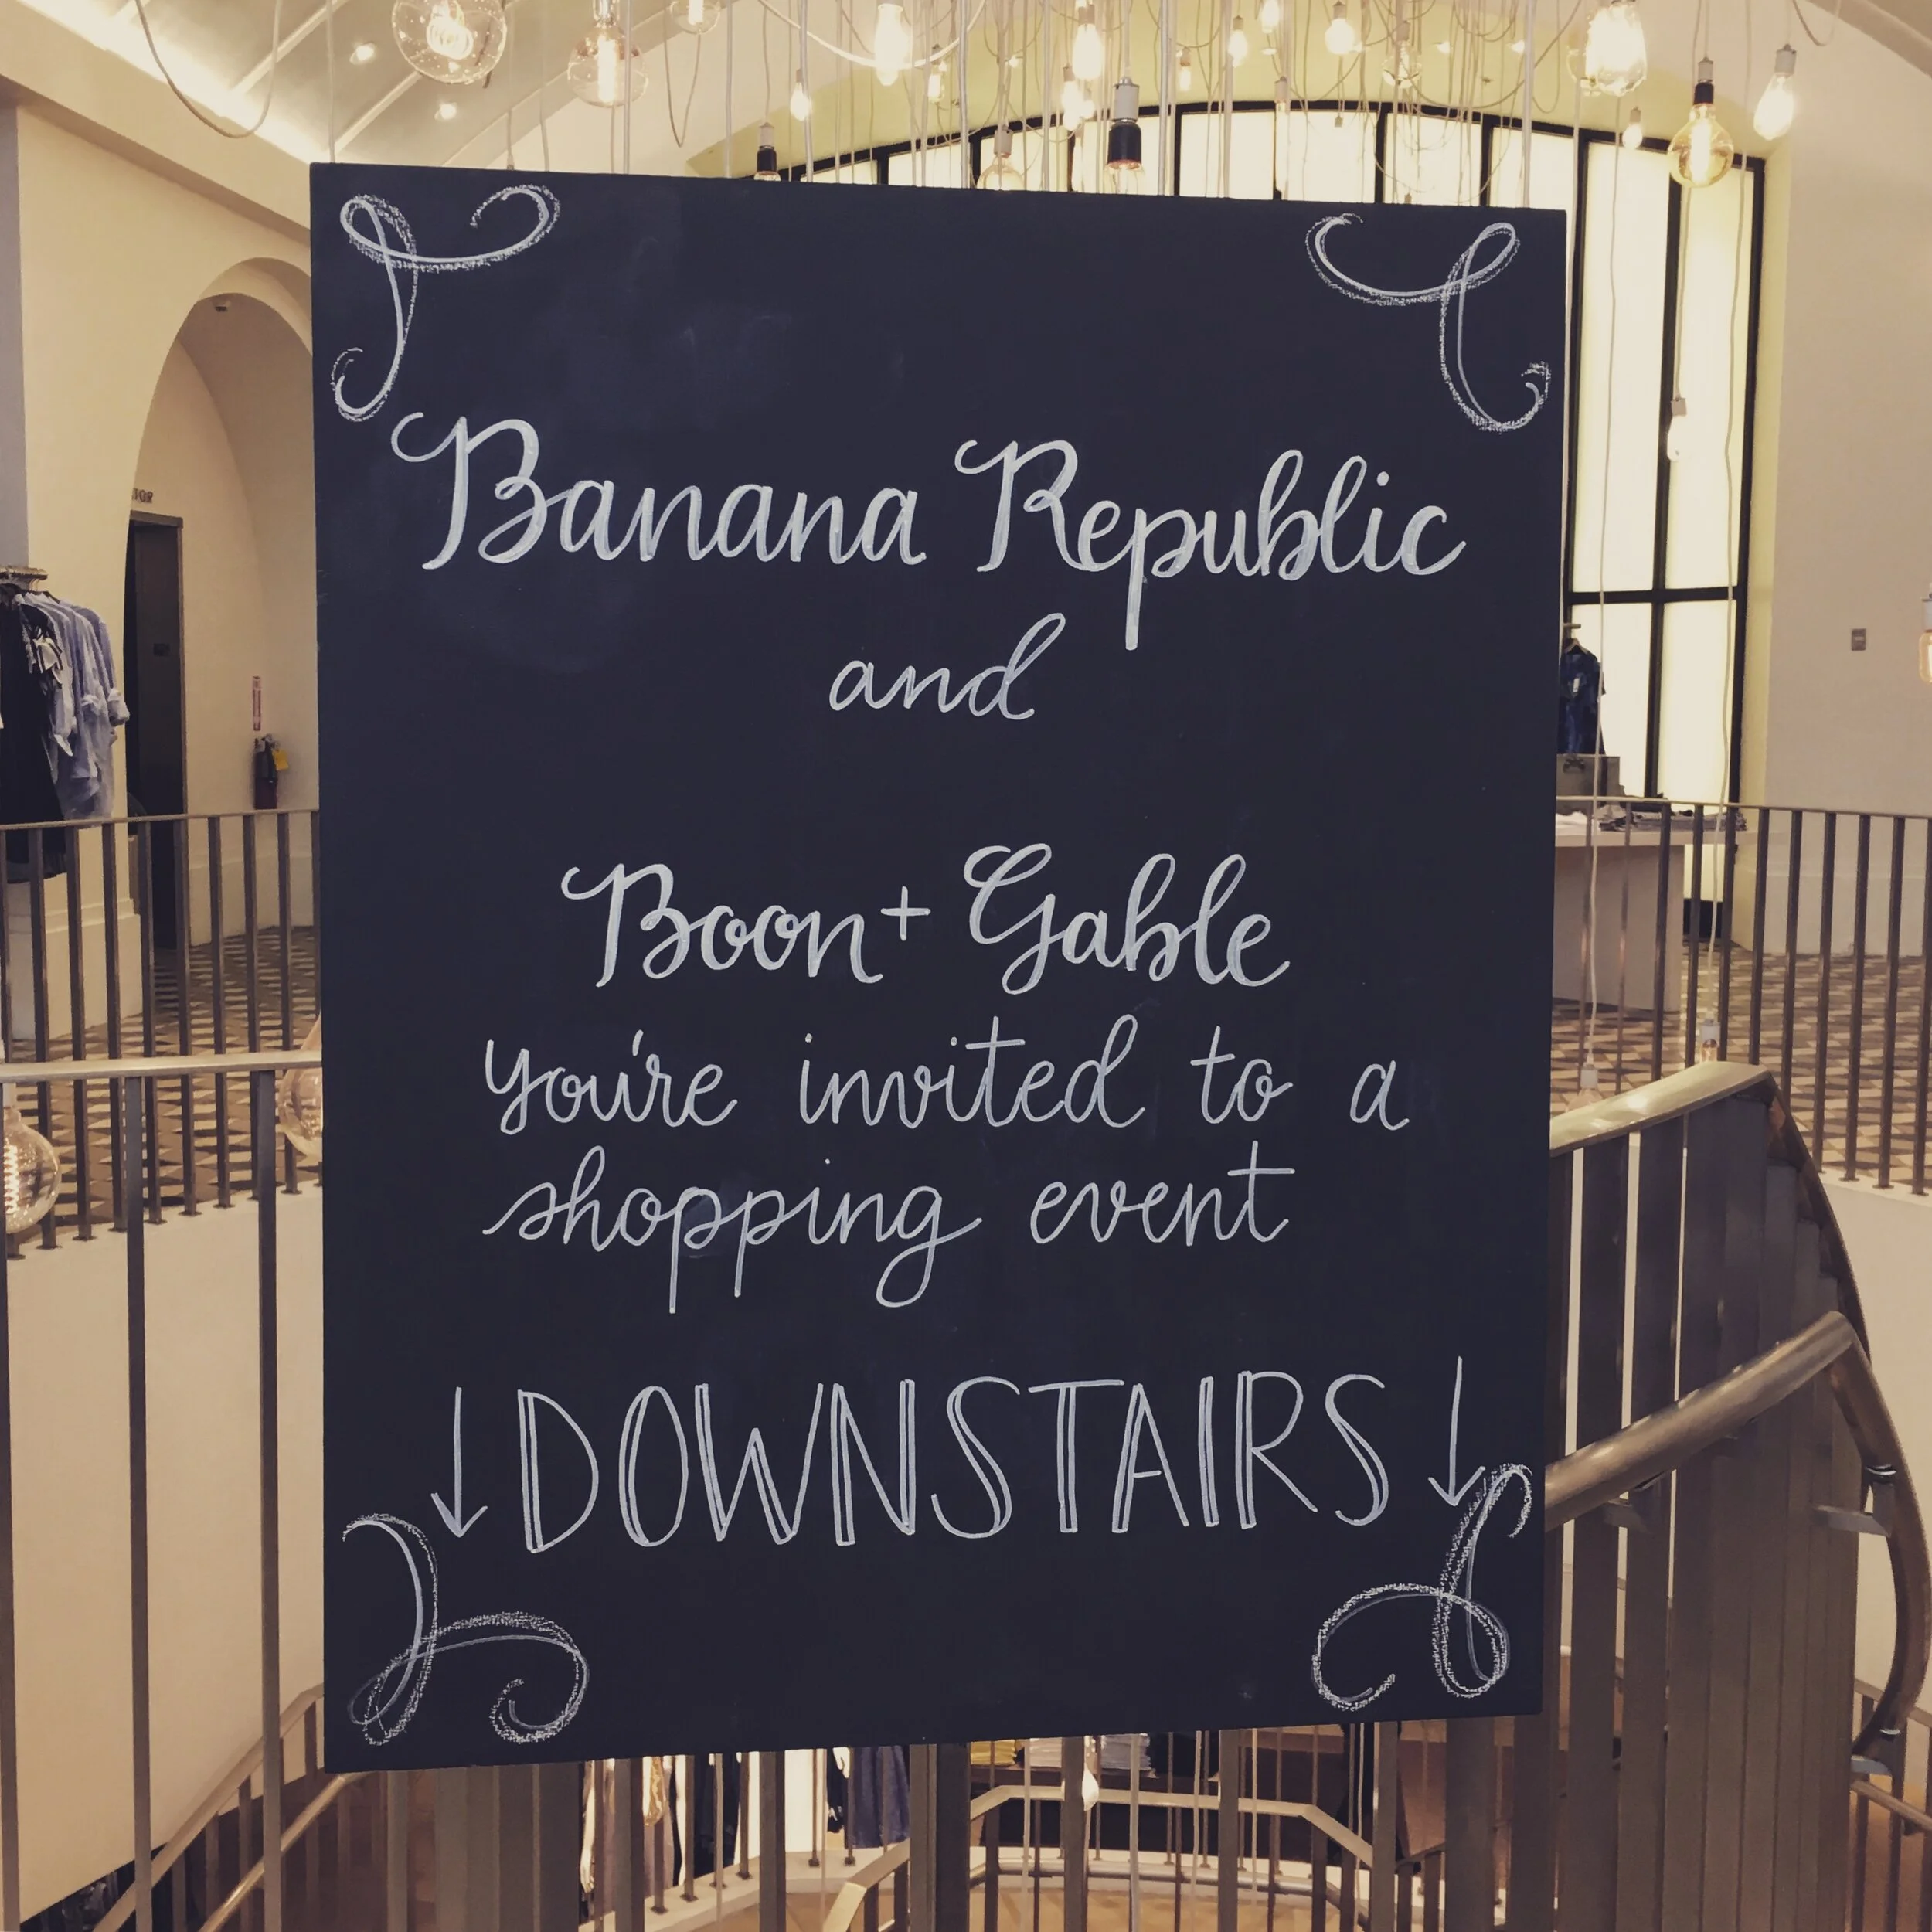 Banana Republic
and
Boon + Gable
you're invited to a
shopping event
↓ DOWNSTAIRS ↓